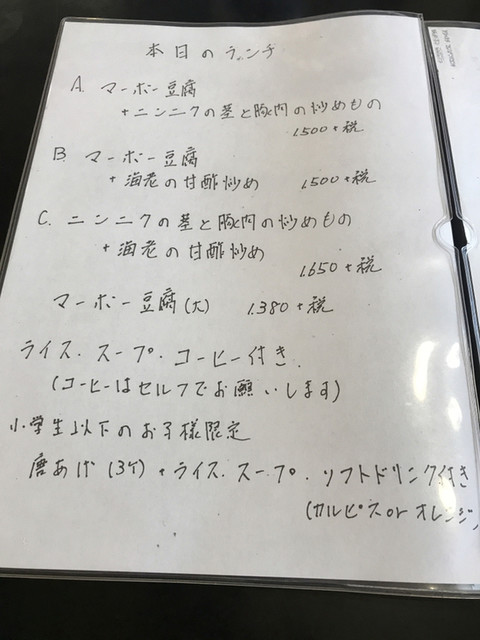 本日のランチ
A. マーボー豆腐
+ニンニクの茎と胸肉の炒めもの
1.500+税
B. マーボー豆腐
+海老の甘酢炒め 1.500+税
C. ニンニクの茎と胸肉の炒めもの
+海老の甘酢炒め
1.650+税
マーボー豆腐(大) 1.380+税
ライス.スープ.コーヒー付き.
(コーヒーはセルフでお願いします)
小学生以下のお子様限定
唐あげ(3ケ)+ライス.スープ.ソフトドリンク付き
(カルピスorオレンジ)